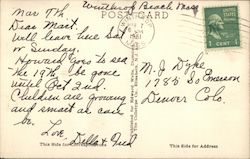 Winthrop Beach Mass
POST CARD
Mar 7th
Dear Mart.
Will leave here Sat
or Sunday.
Howard goes to sea
the 19th be gone
until Oct 2nd.
Children are growing
and smart as can
be.
Love
Della & Fred
M. J. Dyke,
1735 So Emerson
Denver Colo.
1 CENT 1
This Side for Address